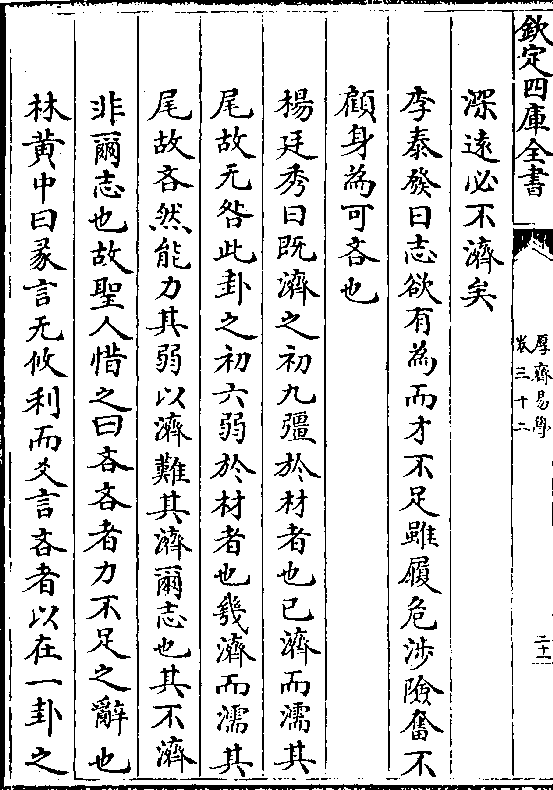 欽定四庫全書
厚齋易學
卷三十二
二十一
深遠必不濟矣
李泰發曰志欲有為而才不足雖履危涉險奮不
顧身為可吝也
楊廷秀曰既濟之初九彊於材者也已濟而濡其
尾故无咎此卦之初六弱於材者也幾濟而濡其
尾故吝然能力其弱以濟難其濟爾志也其不濟
非爾志也故聖人惜之曰吝吝者力不足之辭也
林黃中曰彖言无攸利而爻言吝者以在一卦之